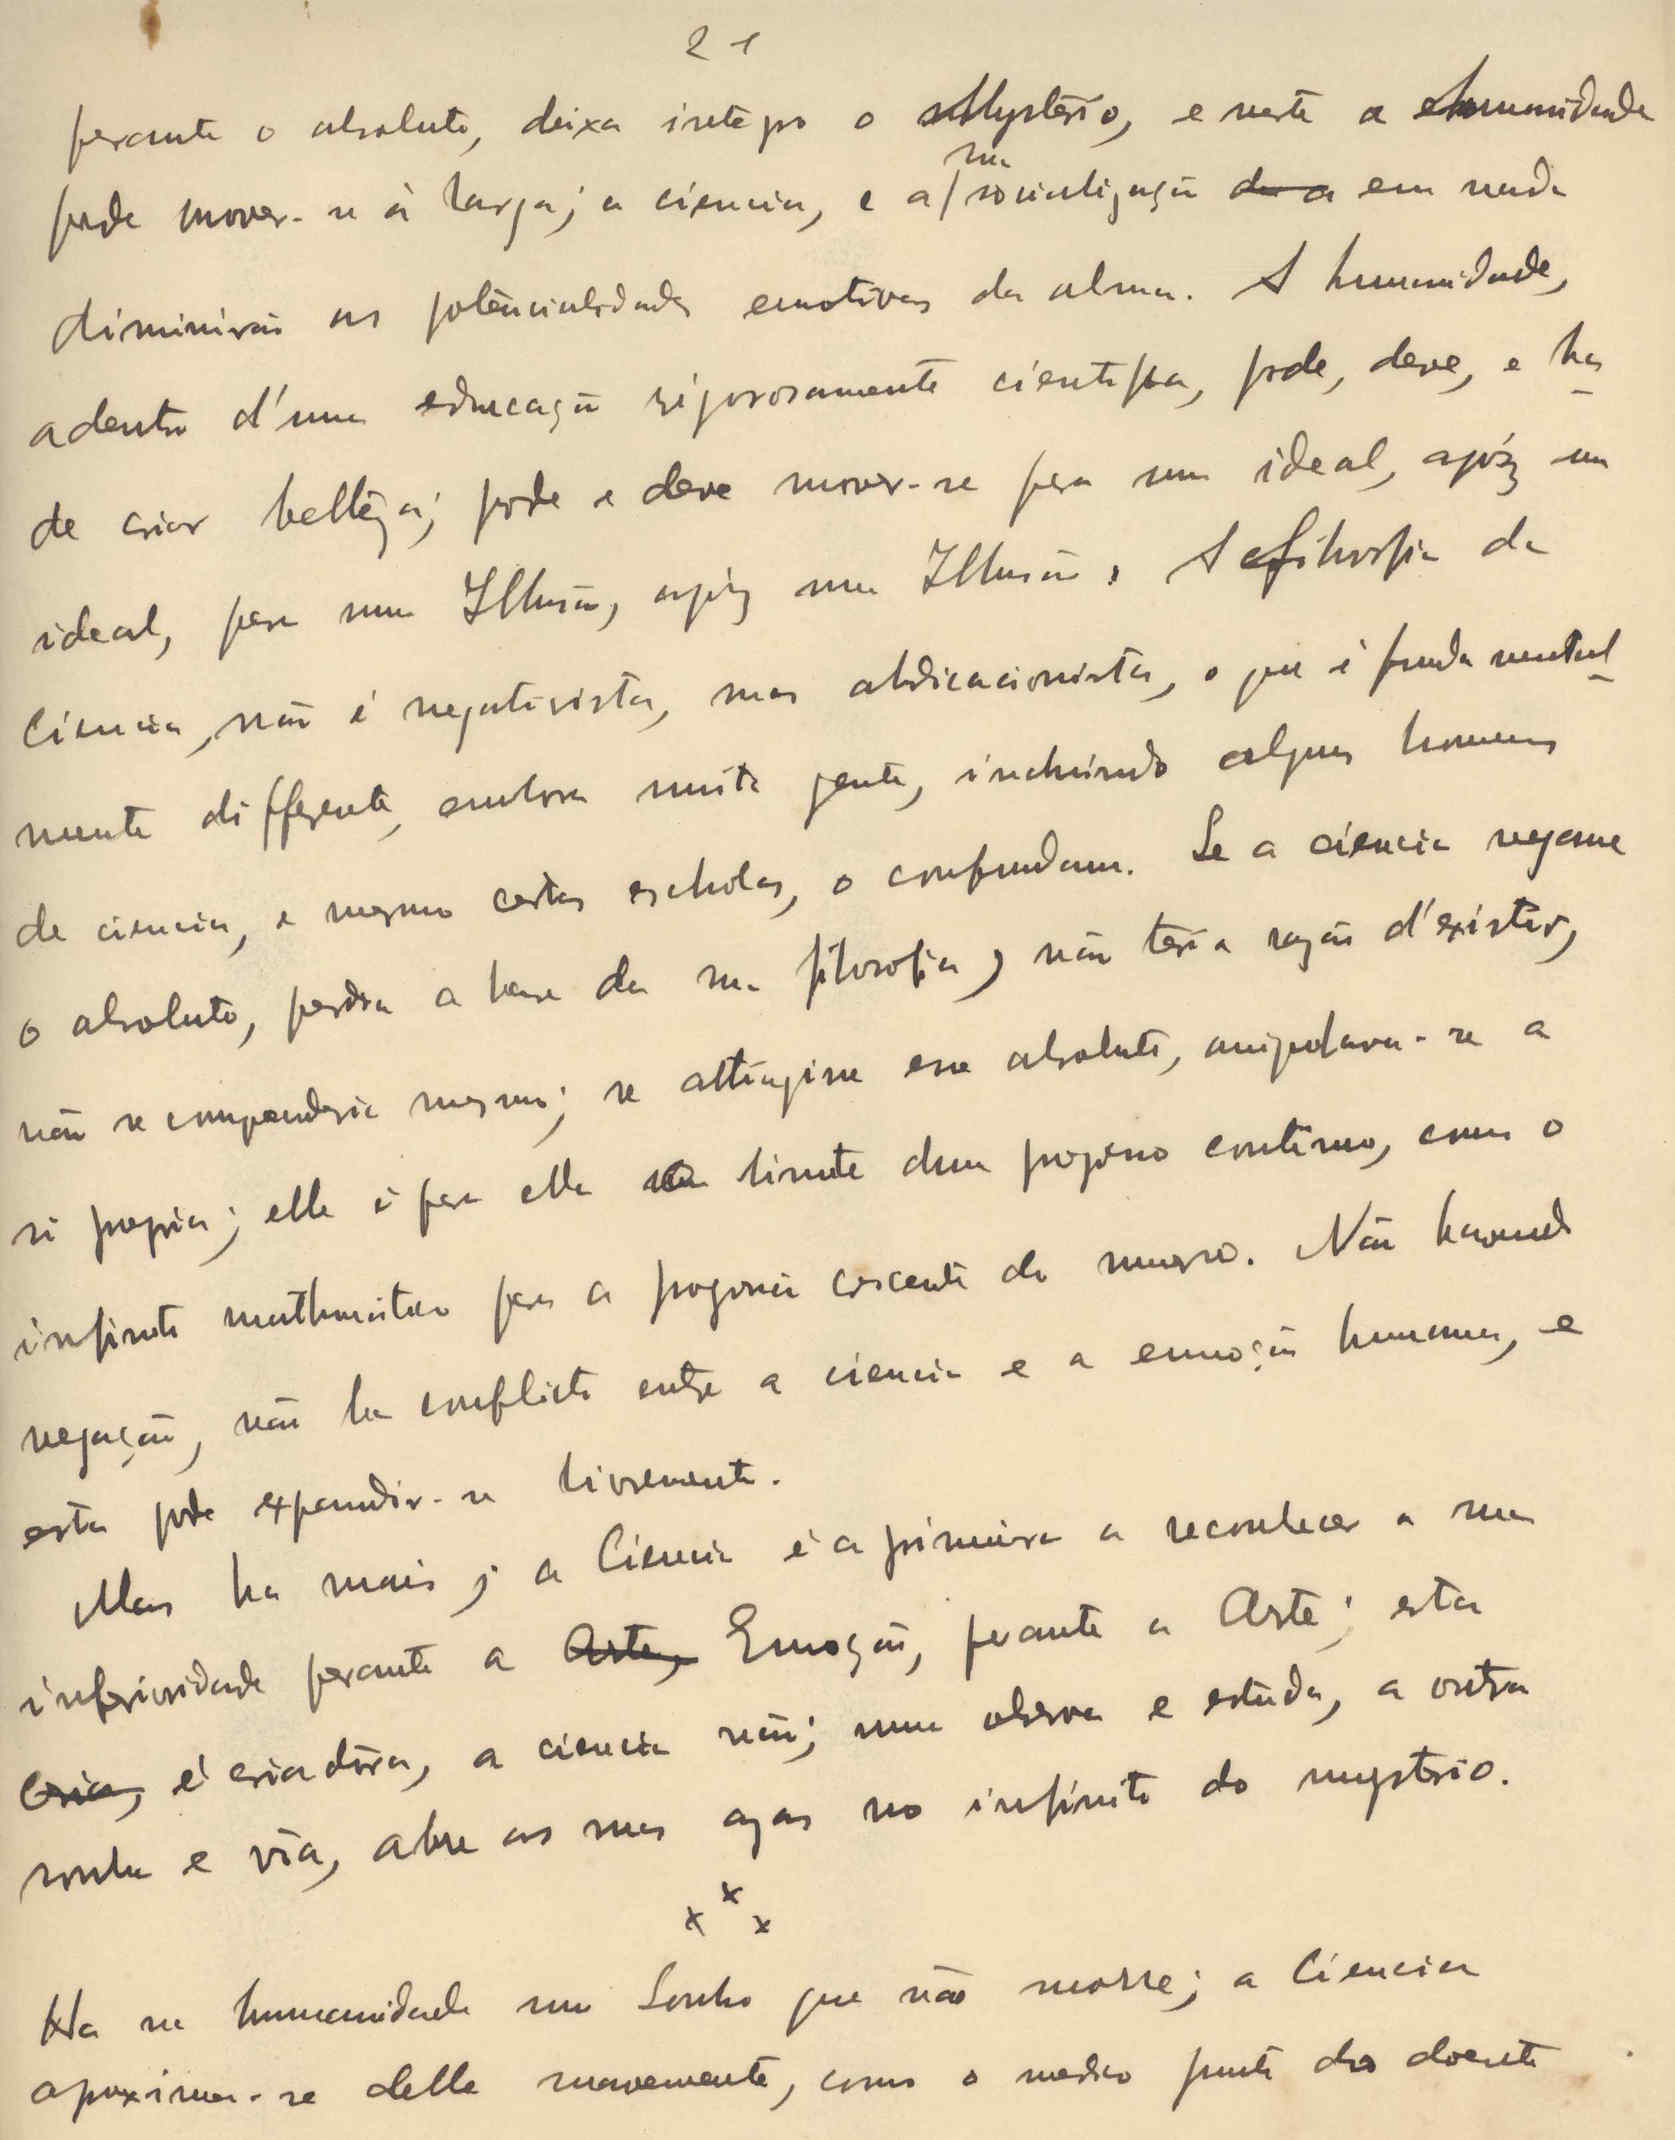 21
perante o absoluto, deixa intégro o Mystério, e neste a humanidade
pode mover-se á larga; a ciencia, e a sua socialisação em nada
diminuirão as potêncialidades emotivas da alma. A humanidade,
adentro d'uma educação rigorosamente cientifica, pode, deve, e ha-
de criar bellêza; pode e deve mover-se pera um ideal, apóz um
ideal, pera uma Illusão, apóz uma Illusão. A filosofia da
Ciencia, não é negativista, mas abdicacionista, o que é fundamental-
mente differente, embora muita gente, incluindo alguns homens
de ciencia, e mesmo certas escholas, o confundam. Se a ciencia negasse
o absoluto, perdia a base da sua filosofia, não teria razão d'existir,
não se compenderia mesmo; se attingisse esse absoluto, aniquilava-se a
si propria; elle é pera ella limite dum progresso continuo, como o
infinito mathematico pera a progressão crescente do numero. Não havendo
negação, não ha conflicto entre a ciencia e a emoção humana, e
esta pode expandir-se livremente.
Mas ha mais; a Ciencia é a primeira a reconhecer a sua
inferioridade perante a Arte, Emoção, perante a Arte; esta
Cria, é criadôra, a ciencia não; uma observa e estuda, a outra
sonha e vôa, abre as suas azas no infinito do mysterio.
x x x
Ha na humanidade um Sonho que não morre; a Ciencia
aproxima-se delle suavemente, como o medico junto do doente